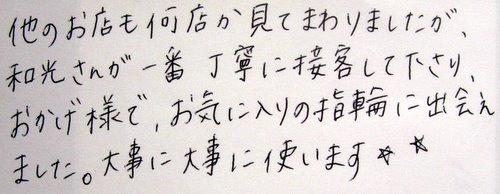 他のお店も何店か見てまわりましたが、
和光さんが一番丁寧に接客して下さり、
おかげ様で、お気に入りの指輪に出会え
ました。大事に大事に使います☆☆